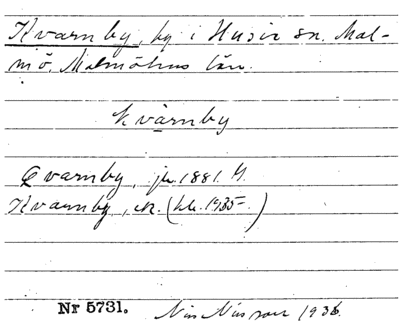 Kvarnby, by i Husie sn. Mal-
mö. Malmöhus län.
kvarnby
Qvarnby, jb. 1881.
Kvarnby, ek. (hb. 1935)
Nr 5731. Nils Nilsson 1936